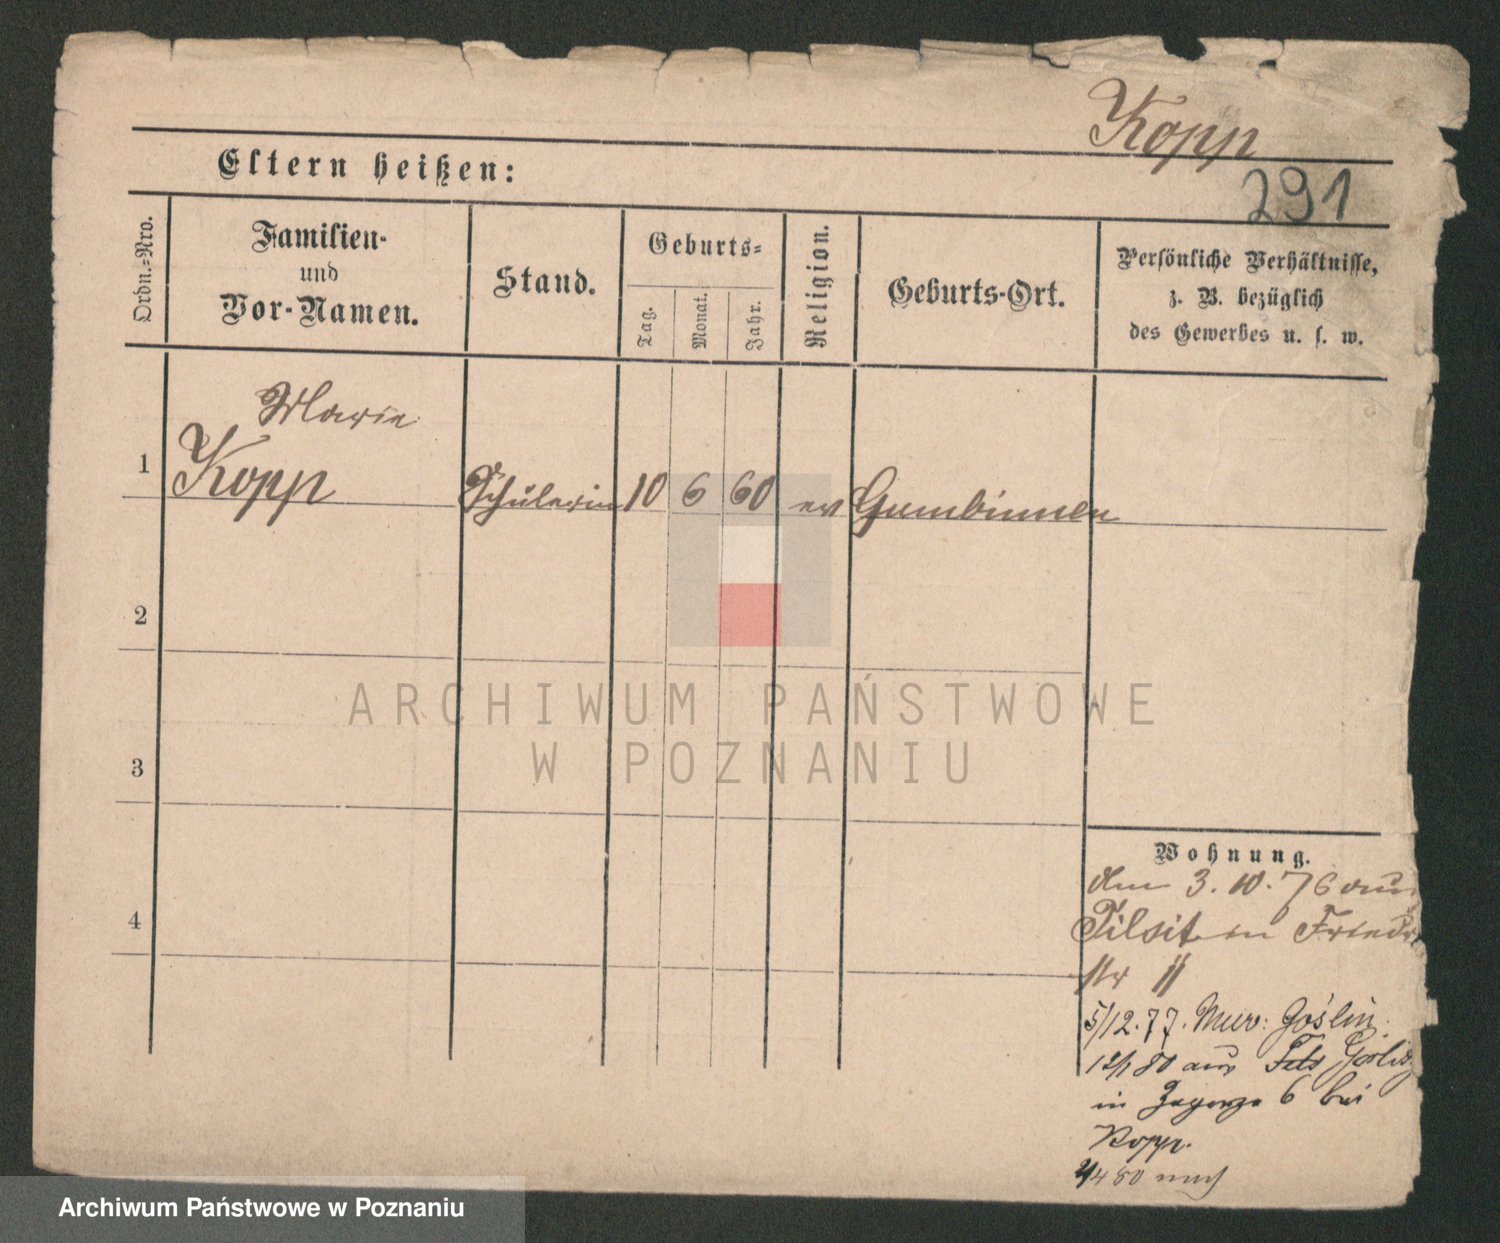 Kopp
Eltern heißen:
291
Ordn.=Nro.
Familien-
und
Vor-Namen.
Stand.
Geburts=
Tag.
Monat.
Jahr.
Religion.
Geburts-Ort.
Persönliche Verhältnisse,
z. B. bezüglich
des Gewerbes u. s. w.
Marie
1 Kopp Schülerin 10 6 60 ev Gumbinnen
2
3
4
ARCHIWUM PAŃSTWOWE
W POZNANIU
Wohnung.
den 3. 10. 76 aus
Tilsit in Friedr
str 11
5/12. 77. Mur: Goslin.
12/1 80 aus Goslin
in Zagorze 6 bei
Kopp.
4 80 nach
Archiwum Państwowe w Poznaniu